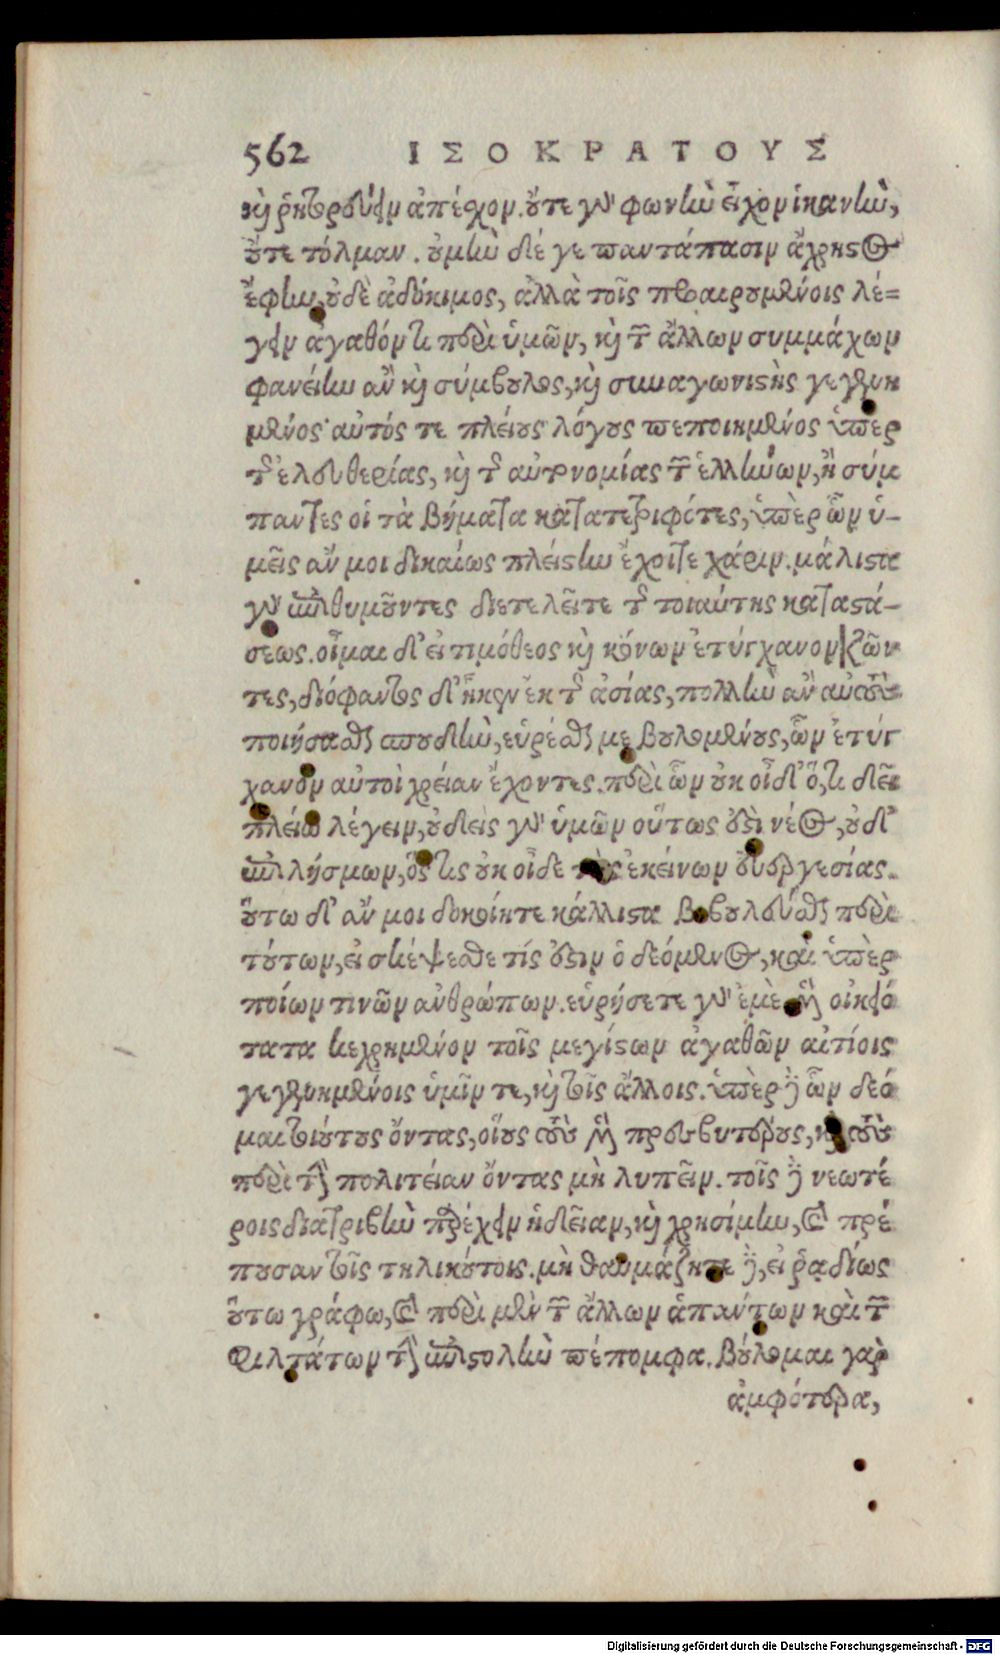 562 ΙΣΟΚΡΑΤΟΥΣ
καὶ ῥητορεύειν ἀπέχομ. οὔτε γὰρ φωνὴν εἶχομ ἱκανὴν,
οὔτε τόλμαν. οὐ μὴν διέ γε παντάπασιμ ἄχρηστος
ἔφυν, οὐδὲ ἀδόκιμος, ἀλλὰ τοῖς προαιρουμένοις λέ=
γειν ἀγαθόμ τι περὶ ὑμῶμ, καὶ τῶν ἄλλωμ συμμάχωμ
φανείην ἂν καὶ σύμβουλος, καὶ συναγωνιστὴς γεγενη
μένος· αὐτός τε πλείους λόγους πεποιημένος ὑπὲρ
τῆς ἐλευθερίας, καὶ τῆς αὐτονομίας τῶν ἑλλήνωμ, ἢ σύμ
παντες οἱ τὰ βήματα κατατετριφότες, ὑπὲρ ὧμ ὑ-
μεῖς ἄν μοι δικαίως πλείστην ἔχοιτε χάριμ. μάλιστα
γὰρ ἐπιθυμοῦντες διετελεῖτε τῆς τοιαύτης καταστά-
σεως. οἶμαι δ' εἰ τιμόθεος καὶ κόνωμ ἐτύγχανομ ζῶν
τες, διόφαντος δ' ἧκεν ἐκ τῆς ἀσίας, πολλὴν ἂν αὐτοὺς
ποιήσασθαι σπουδὴν, εὑρέσθαι με βουλομένους, ὧμ ἐτύγ
χανομ αὐτοὶ χρείαν ἔχοντες. περὶ ὧμ οὐκ οἶδ' ὅ,τι δεῖ
πλείω λέγειμ, οὐδεὶς γὰρ ὑμῶμ οὕτως ἐστὶ νέος, οὐδ'
ἐπιλήσμωμ, ὅστις οὐκ οἶδε τὰς ἐκείνωμ εὐεργεσίας.
οὕτω δ' ἄν μοι δοκοίητε κάλλιστα βεβουλεῦσθαι περὶ
τούτωμ, εἰ σκέψεσθε τίς ἐστιμ ὁ δεόμενος, καὶ ὑπὲρ
ποίωμ τινῶμ ἀνθρώπωμ. εὑρήσετε γὰρ ἐμὲ μὲν οἰκειό
τατα κεχρημένομ τοῖς μεγίστωμ ἀγαθῶμ αἰτίοις
γεγενημένοις ὑμῖμ τε, καὶ τοῖς ἄλλοις. ὑπὲρ δὲ ὧμ δέο
μαι τοιούτους ὄντας, οἵους τοὺς μὲν πρεσβυτέρους, καὶ τοὺς
περὶ τὴν πολιτείαν ὄντας μὴ λυπεῖμ. τοῖς δὲ νεωτέ
ροις διατριβὴν παρέχειμ ἡδεῖαμ, καὶ χρησίμην, καὶ πρέ
πουσαν τοῖς τηλικούτοις. μὴ θαυμάζητε δὲ, εἰ ῥᾳδίως
οὕτω γράφω, καὶ περὶ μὲν τῶν ἄλλωμ ἁπάντωμ καὶ τῶν
φιλτάτωμ τὴν ἐπιστολὴν πέπομφα. βούλομαι γὰρ
ἀμφότερα,
Digitalisierung gefördert durch die Deutsche Forschungsgemeinschaft - DFG